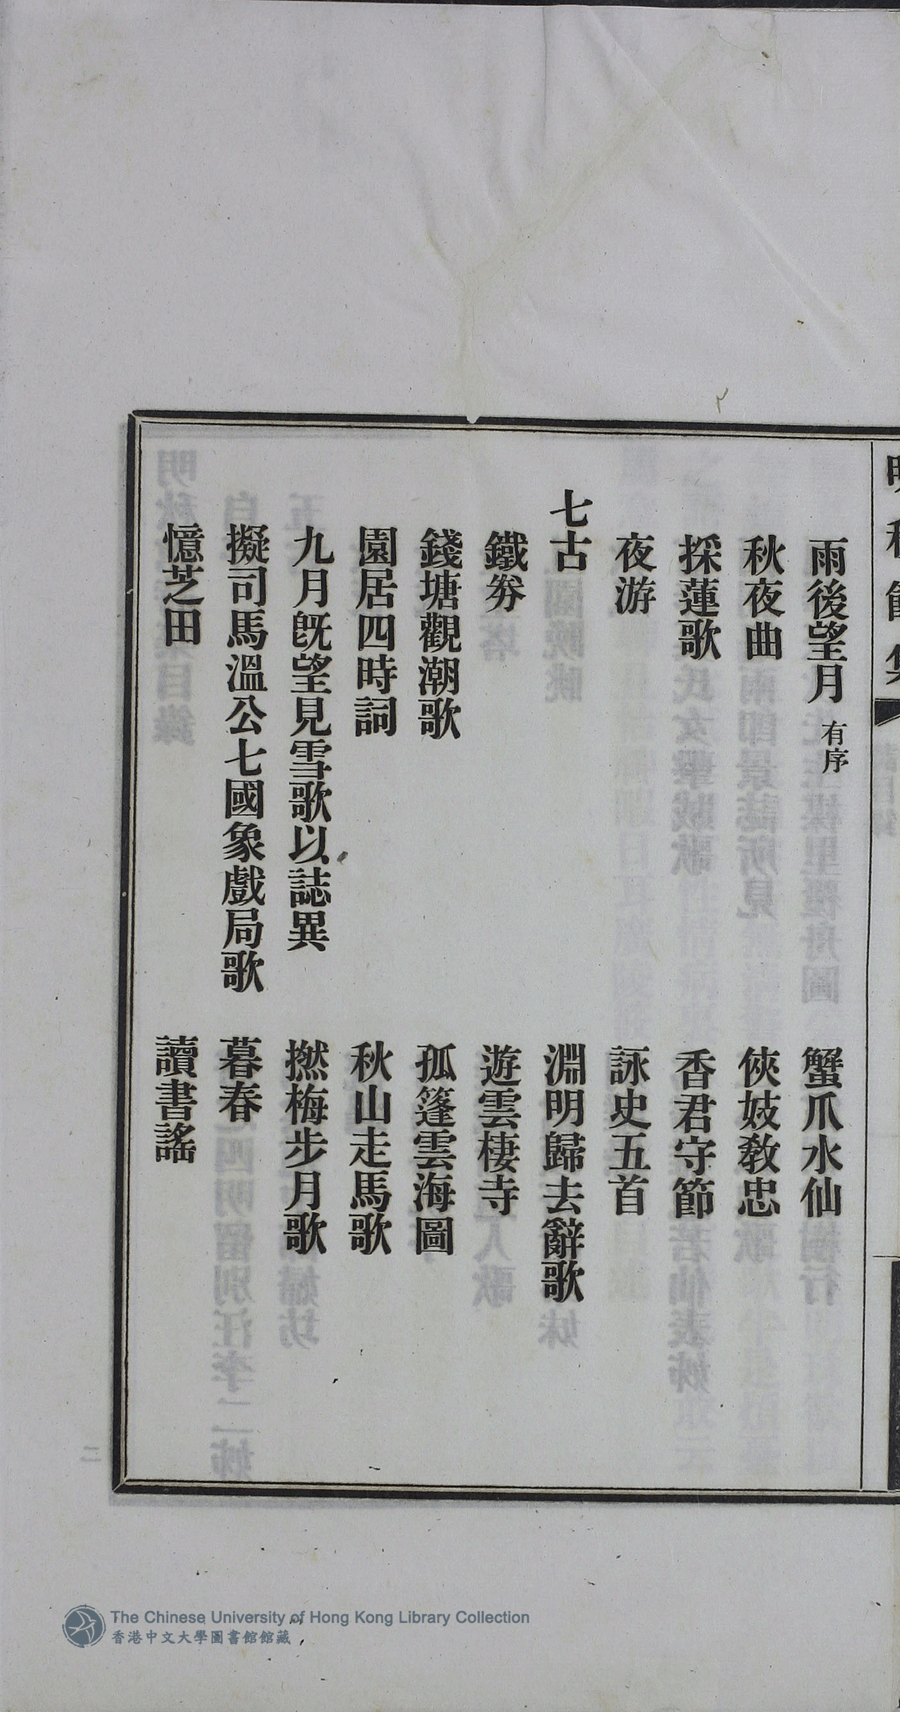 雨後望月 有序 蟹爪水仙
秋夜曲 俠妓教忠
採蓮歌 香君守節
夜游 詠史五首
七古 淵明歸去辭歌
鐵劵 遊雲棲寺
錢塘觀潮歌 孤篷雲海圖
園居四時詞 秋山走馬歌
九月旣望見雪歌以誌異 撚梅步月歌
擬司馬溫公七國象戲局歌 暮春
憶芝田 讀書謠
The Chinese University of Hong Kong Library Collection
香港中文大學圖書館館藏